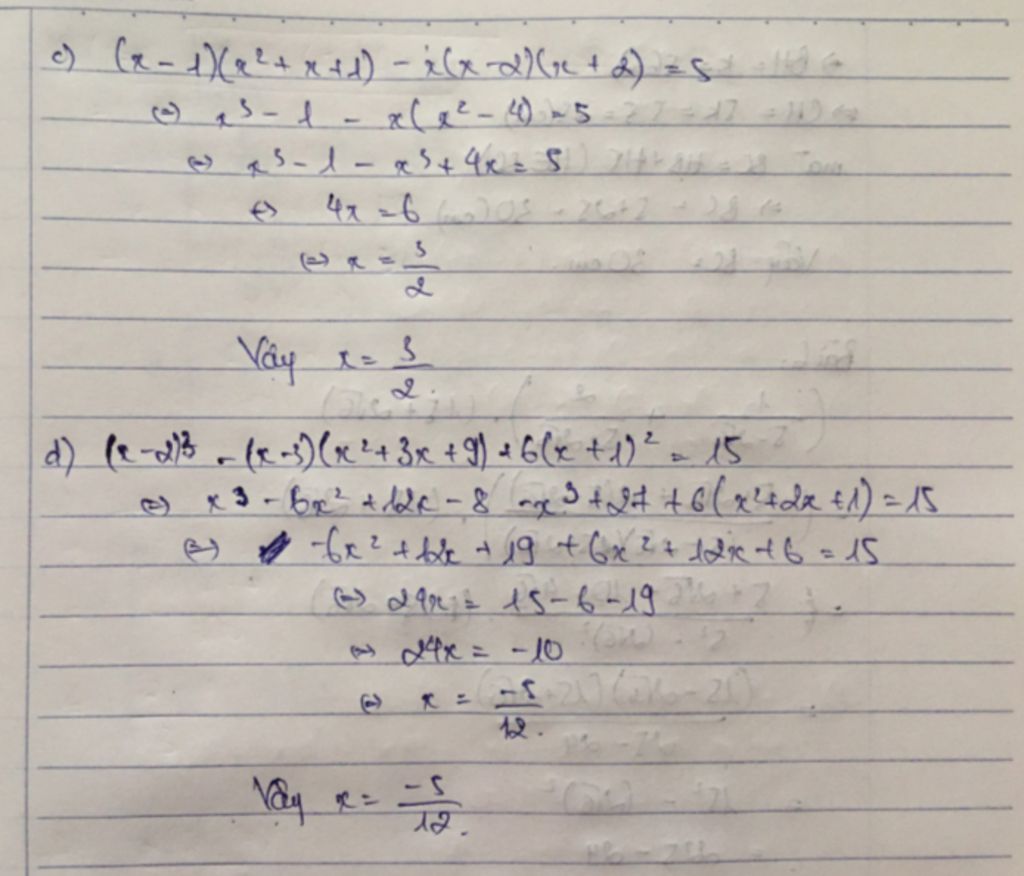 c) (x - 1)(x² + x + 1) - x(x - 2)(x + 2) = 5
(=) x³ - 1 - x(x² - 4) = 5
(=) x³ - 1 - x³ + 4x = 5
(=) 4x = 6
(=) x = 3/2
Vậy x = 3/2
d) (x - 2)³ - (x - 3)(x² + 3x + 9) + 6(x + 1)² = 15
(=) x³ - 6x² + 12x - 8 - x³ + 27 + 6(x² + 2x + 1) = 15
(=) -6x² + 12x + 19 + 6x² + 12x + 6 = 15
(=) 24x = 15 - 6 - 19
(=) 24x = -10
(=) x = -5/12.
Vậy x = -5/12.